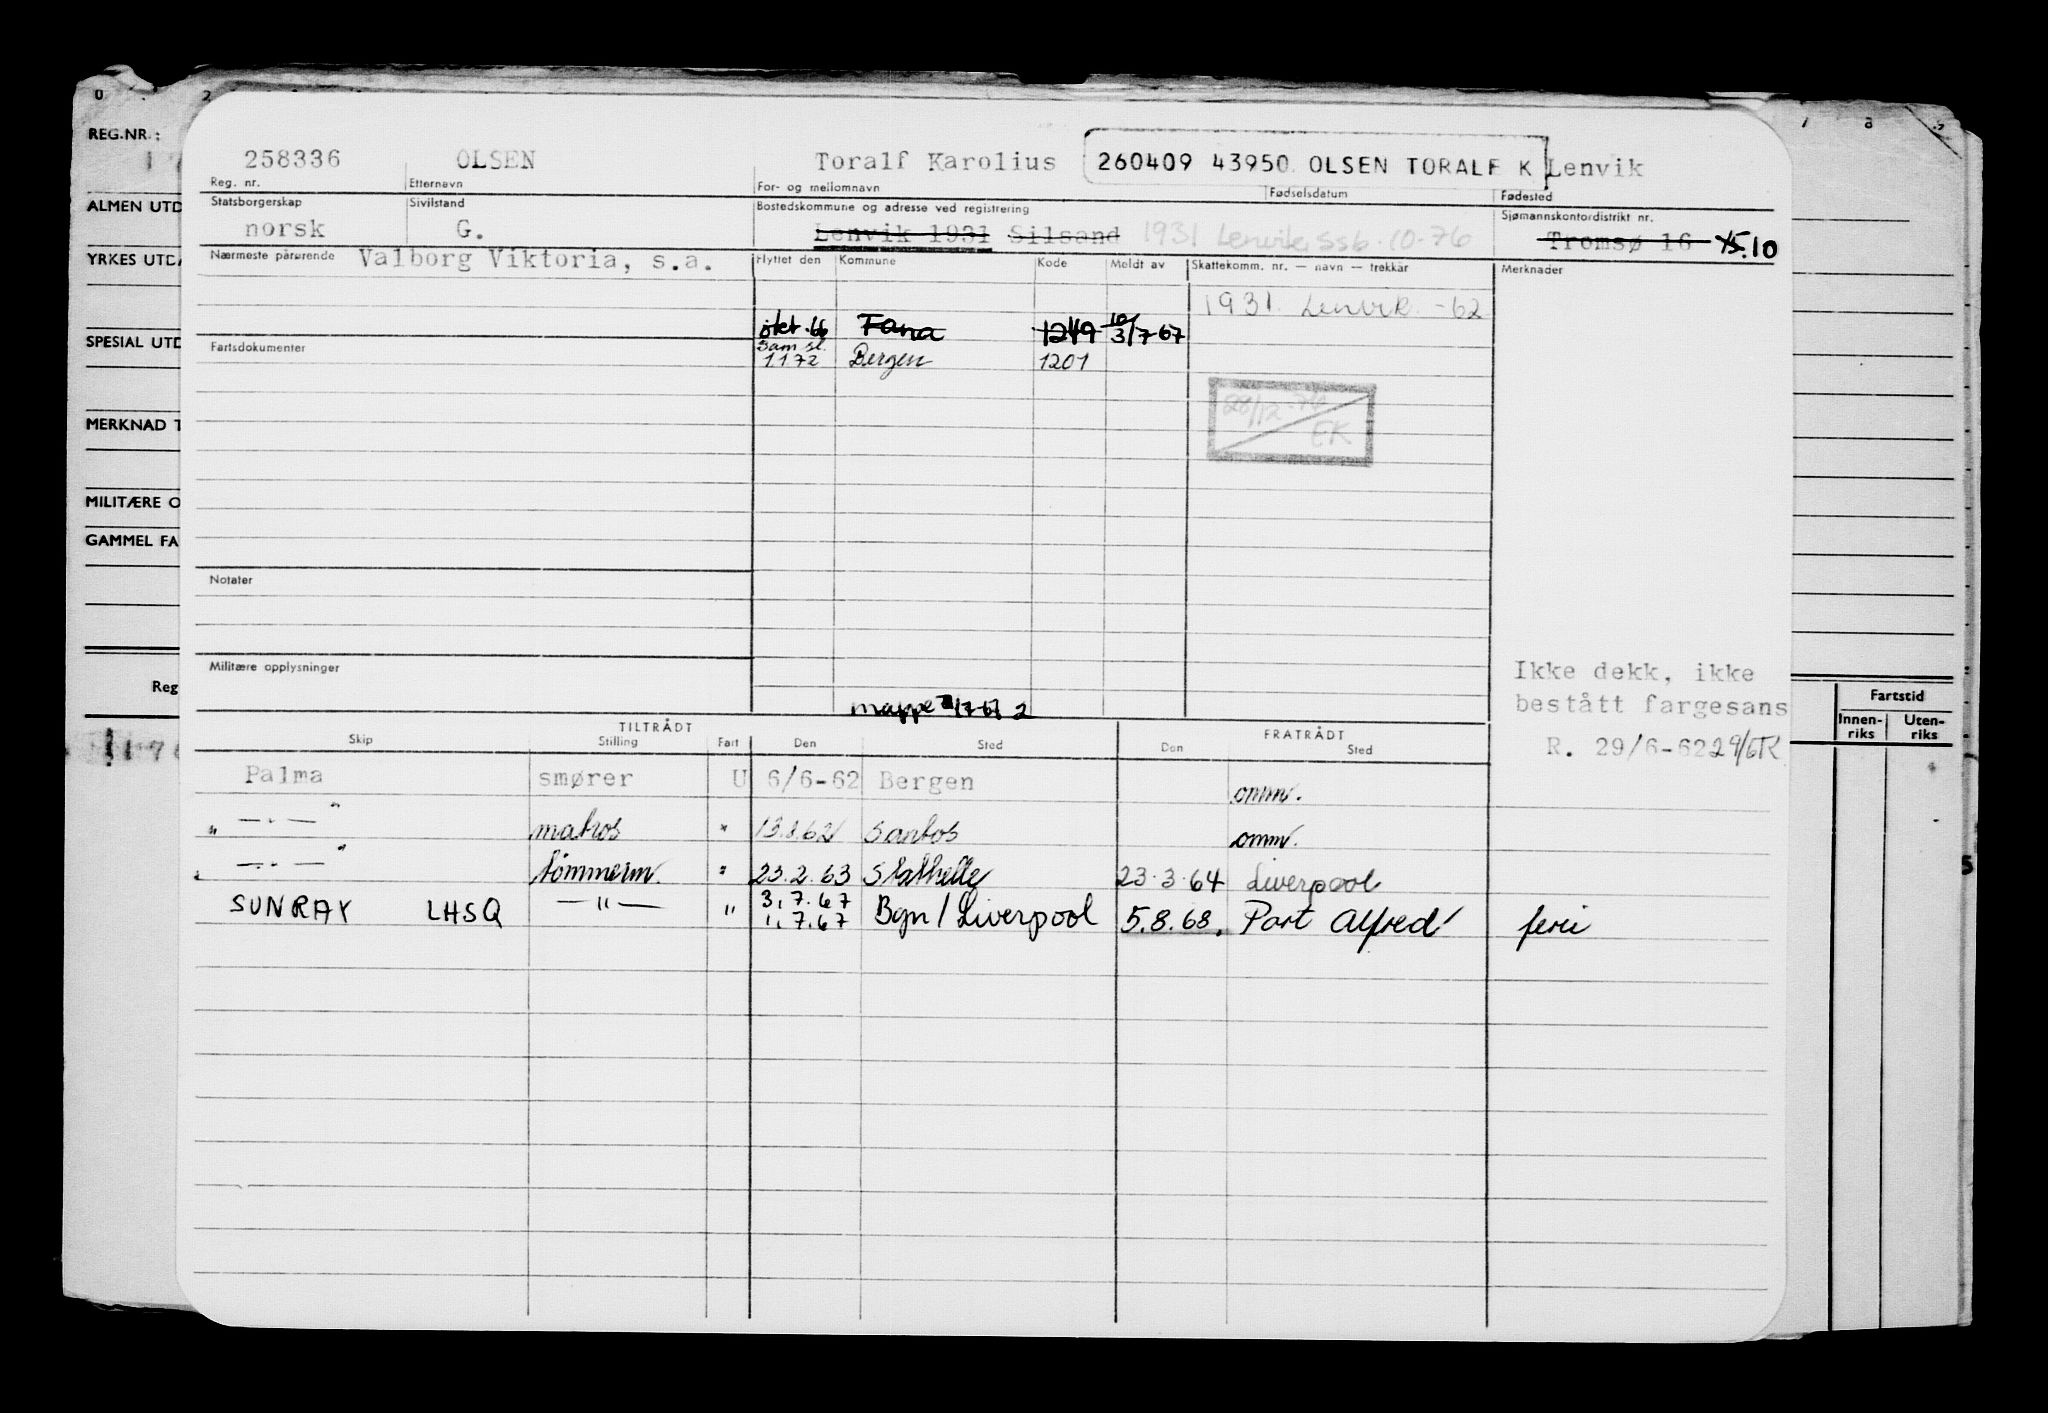 0 2 7 8
REG.NR.:
ALMEN UTD
YRKES UTDA
SPESIAL UTD
MERKNAD T
MILITÆRE O
GAMMEL FA
Reg
Fartstid
Innen-riks Uten-riks
258336 OLSEN Toralf Karolius 260409 43950 OLSEN TORALF K Lenvik
Reg. nr. Etternavn For- og mellomnavn Fødselsdatum Fødested
Statsborgerskap Sivilstand Bostedskommune og adresse ved registrering Sjømannskontordistrikt nr.
norsk G. Lenvik 1931 Silsand 1931 Lenvik, Ssb. 10-76 Tromsø 16 15. 10
Nærmeste pårørende Valborg Viktoria, s.a. Flyttet den Kommune Kode Meldt av Skattekomm. nr. — navn — trekkår Merknader
1931. Lenvik. -62
okt. 66 Fana 1249 10/3/7-67
Fartsdokumenter Sam sl.
1.1 72 Bergen 1201
28/12-76
EK
Notater
Militære opplysninger
Ikke dekk, ikke
bestått fargesans
R. 29/6-62 29/6
mappe 2
TILTRÅDT FRATRÅDT
Skip Stilling Fart Den Sted Den Sted
Palma smører U 6/6-62 Bergen omm.
" — " — " matros " 13.8.62 Santos omm.
" — " — " tømmerm. " 23.2.63 Stathelle 23.3.64 Liverpool
SUNRAY LHSQ — " — " 3.7.67 1.7.67 Bgn / Liverpool 5.8.68. Port Alfred ferie